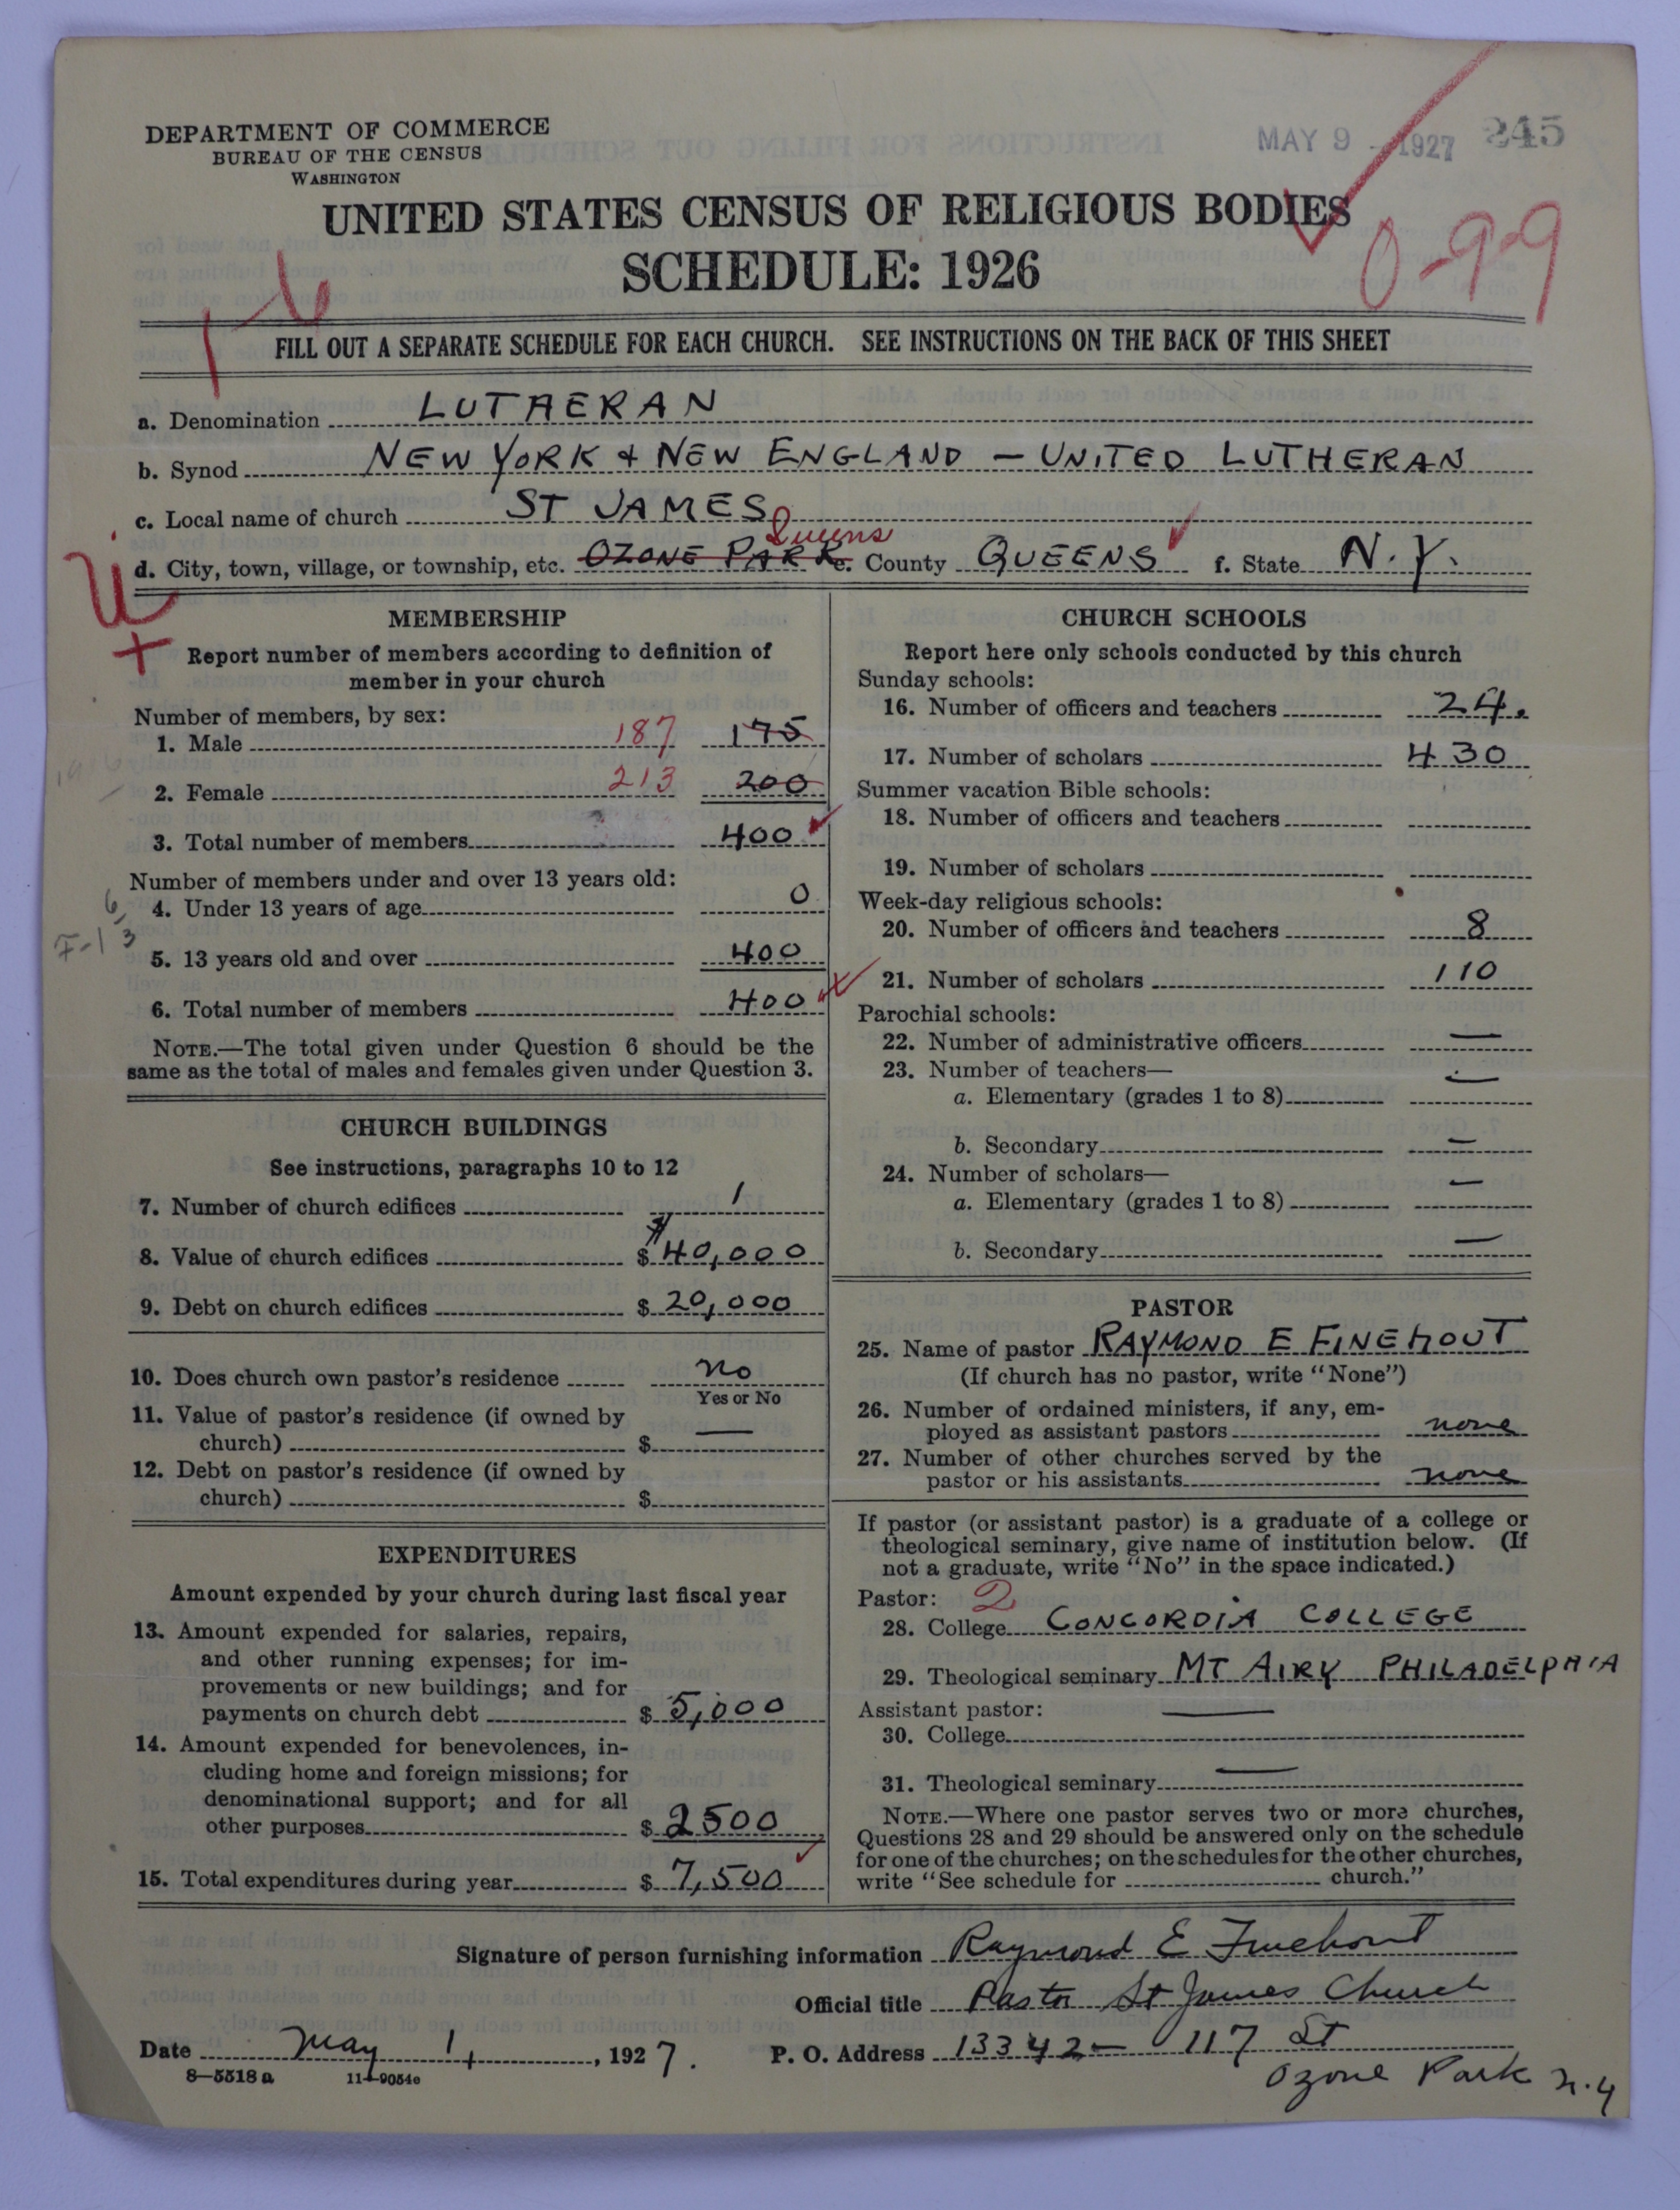 DEPARTMENT OF COMMERCE
BUREAU OF THE CENSUS
WASHINGTON
MAY 9 - 1927 245
UNITED STATES CENSUS OF RELIGIOUS BODIES
SCHEDULE: 1926
0-99
16
FILL OUT A SEPARATE SCHEDULE FOR EACH CHURCH. SEE INSTRUCTIONS ON THE BACK OF THIS SHEET
a. Denomination LUTHERAN
b. Synod NEW YORK & NEW ENGLAND - UNITED LUTHERAN
c. Local name of church ST JAMES
Queens
d. City, town, village, or township, etc. OZONE PARK e. County QUEENS f. State N.Y.
MEMBERSHIP
Report number of members according to definition of
member in your church
Number of members, by sex:
1. Male 187 175
2. Female 213 200
3. Total number of members 400
Number of members under and over 13 years old:
4. Under 13 years of age 0
5. 13 years old and over 400
6. Total number of members 400
NOTE.—The total given under Question 6 should be the
same as the total of males and females given under Question 3.
CHURCH BUILDINGS
See instructions, paragraphs 10 to 12
7. Number of church edifices 1
8. Value of church edifices $ 40,000
9. Debt on church edifices $ 20,000
10. Does church own pastor's residence no
Yes or No
11. Value of pastor's residence (if owned by
church) $ —
12. Debt on pastor's residence (if owned by
church) $
EXPENDITURES
Amount expended by your church during last fiscal year
13. Amount expended for salaries, repairs,
and other running expenses; for im-
provements or new buildings; and for
payments on church debt $ 5,000
14. Amount expended for benevolences, in-
cluding home and foreign missions; for
denominational support; and for all
other purposes $ 2500
15. Total expenditures during year $ 7,500
CHURCH SCHOOLS
Report here only schools conducted by this church
Sunday schools:
16. Number of officers and teachers 24.
17. Number of scholars 430
Summer vacation Bible schools:
18. Number of officers and teachers
19. Number of scholars
Week-day religious schools:
20. Number of officers and teachers 8
21. Number of scholars 110
Parochial schools:
22. Number of administrative officers —
23. Number of teachers—
a. Elementary (grades 1 to 8) —
b. Secondary —
24. Number of scholars—
a. Elementary (grades 1 to 8) —
b. Secondary —
PASTOR
25. Name of pastor RAYMOND E FINEHOUT
(If church has no pastor, write "None")
26. Number of ordained ministers, if any, em-
ployed as assistant pastors none
27. Number of other churches served by the
pastor or his assistants none
If pastor (or assistant pastor) is a graduate of a college or
theological seminary, give name of institution below. (If
not a graduate, write "No" in the space indicated.)
Pastor: 2
28. College CONCORDIA COLLEGE
29. Theological seminary MT AIRY PHILADELPHIA
Assistant pastor: —
30. College
31. Theological seminary —
NOTE.—Where one pastor serves two or more churches,
Questions 28 and 29 should be answered only on the schedule
for one of the churches; on the schedules for the other churches,
write "See schedule for church."
Signature of person furnishing information Raymond E Finehout
Official title Pastor St James Church
Date May 1, 1927. P. O. Address 13342 - 117 St
8-5518a 11-9054e
Ozone Park N.Y